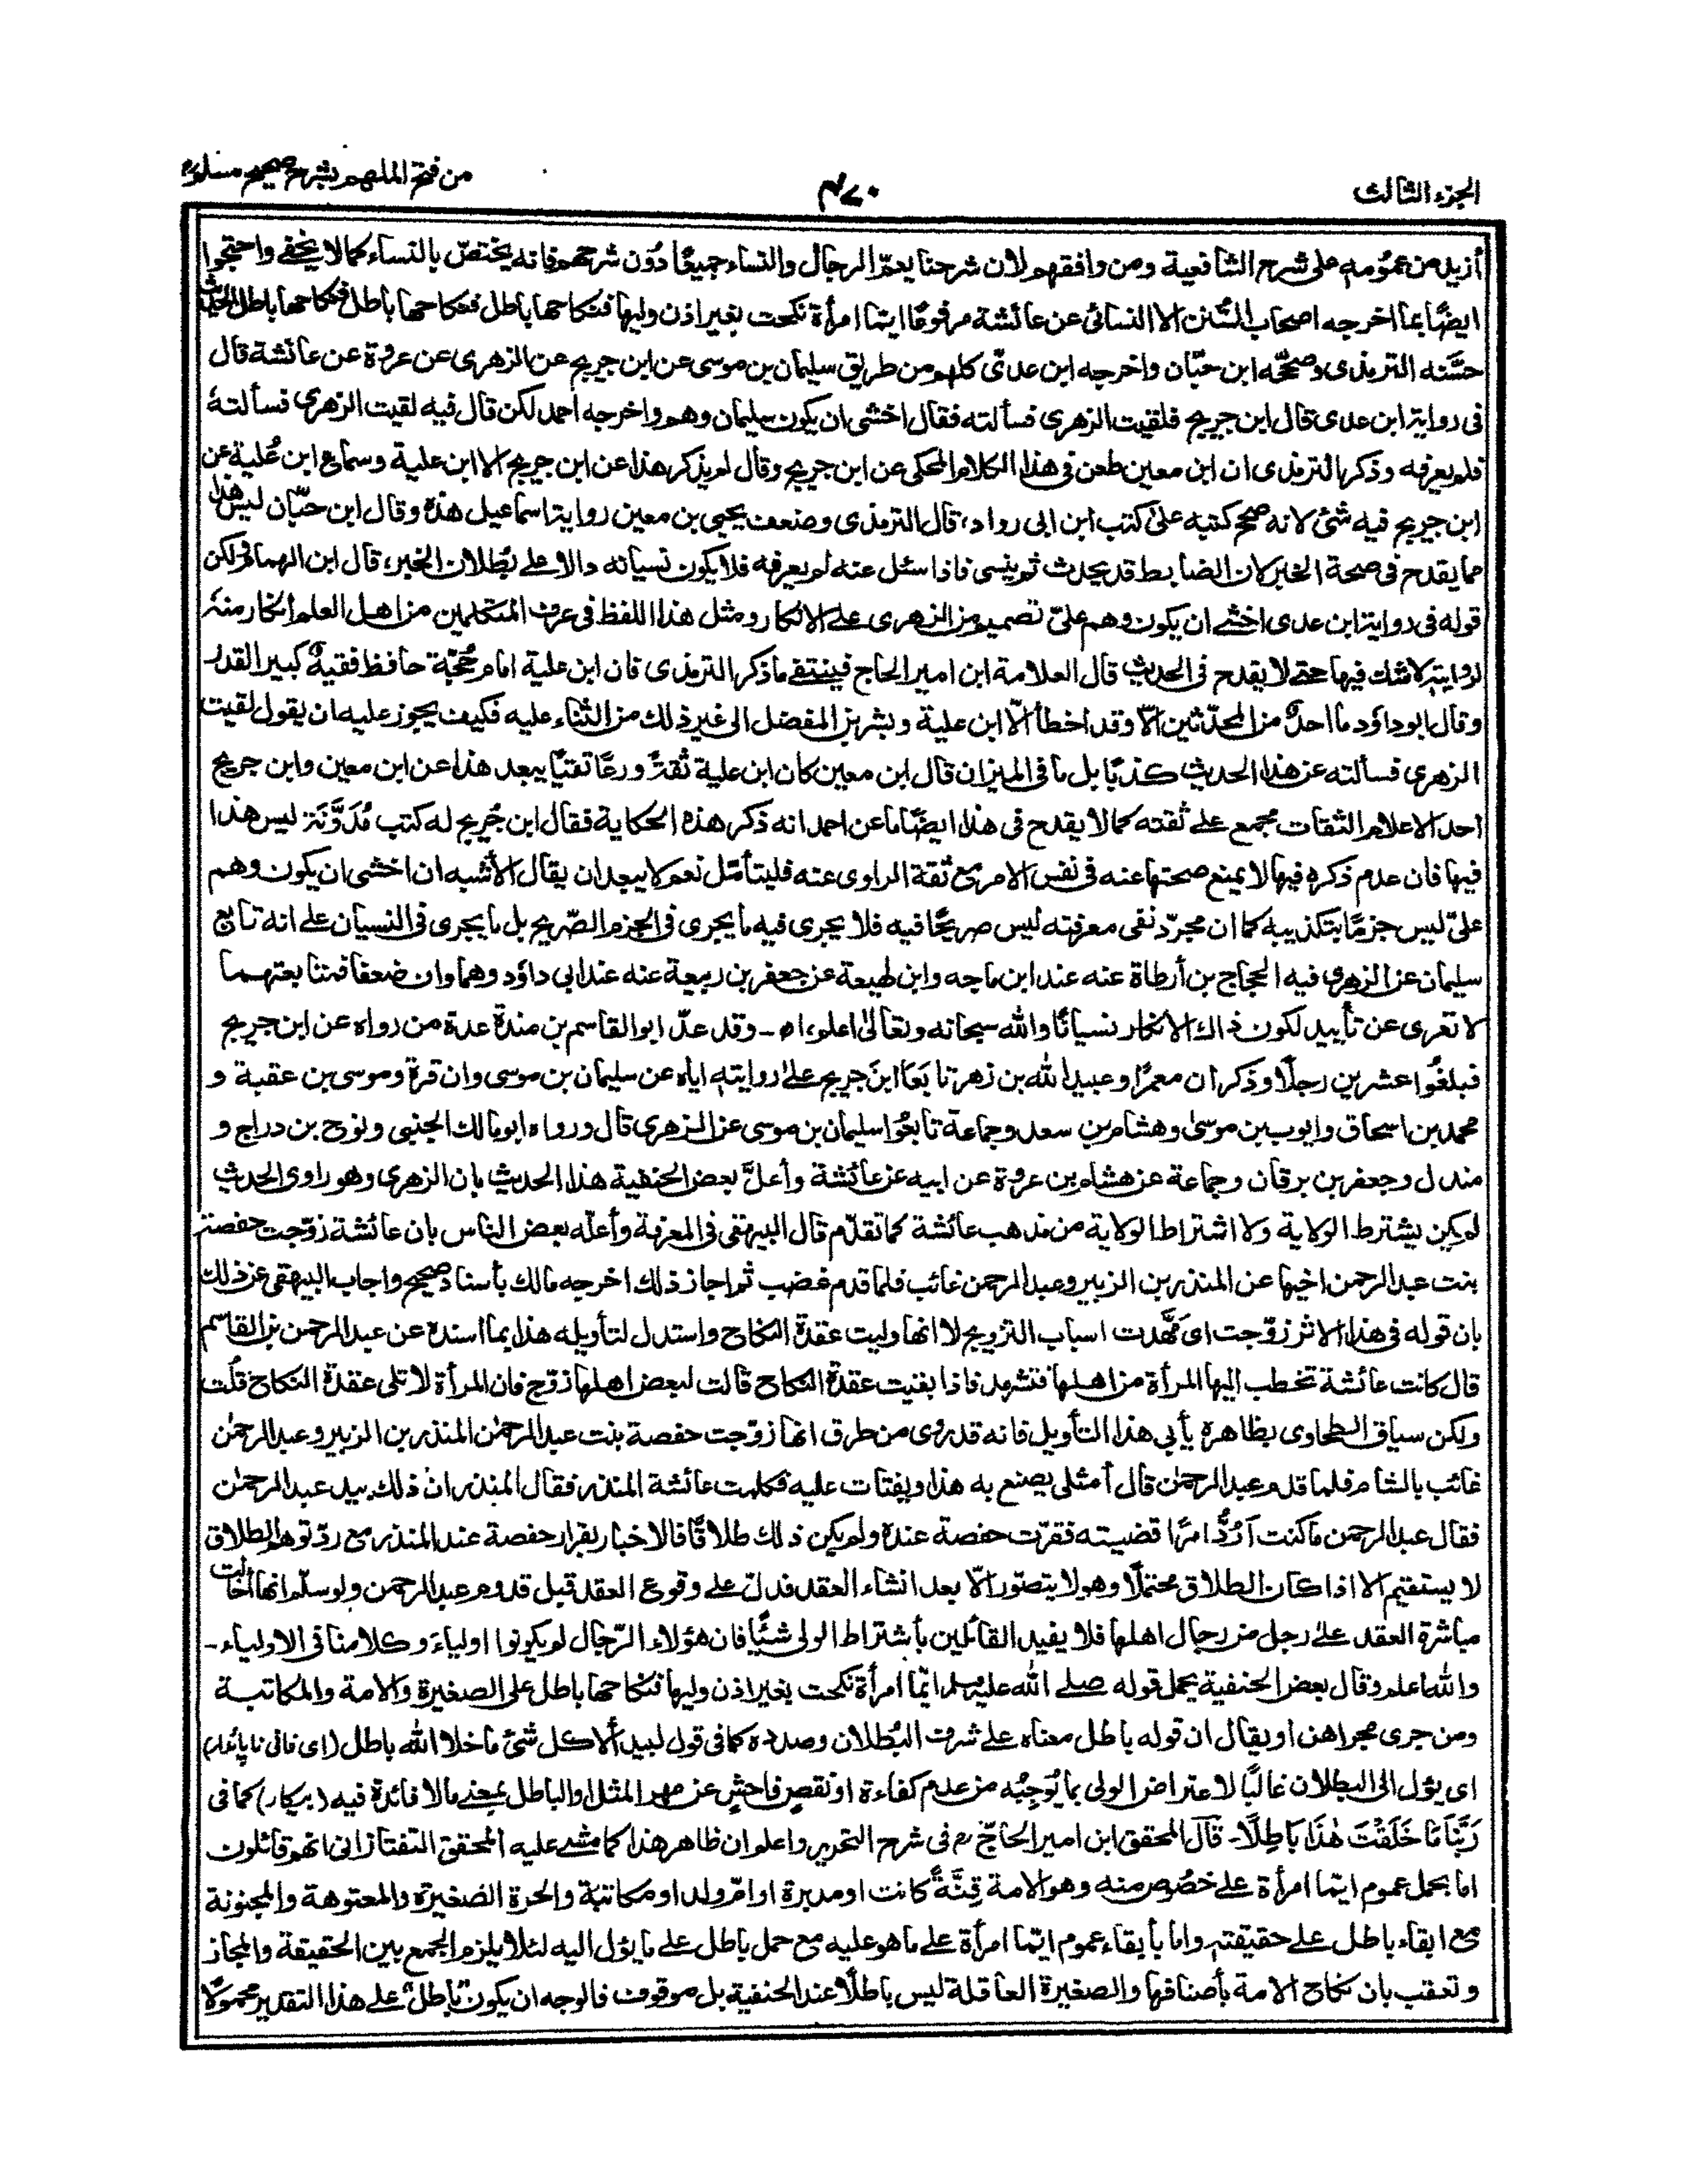 الجزء الثالث
٤٧٠
من فتح الملهم بشرح صحيح مسلم
أزيد من عمومه على شرح الشافعية ومن وافقهم لان شرحنا يعمّ الرجال والنساء جميعًا دُون شرحهم فانه يختصّ بالنساء كما لا يخفى واحتجوا
ايضًا بما اخرجه اصحاب السُنن الا النسائى عن عائشة مرفوعًا ايّما امرأة نكحت بغير اذن وليها فنكاحها باطل فنكاحها باطل فنكاحها باطل الحديث
حسَّنه الترمذى وصححّه ابن حبّان واخرجه ابن عدىّ كلهم من طريق سليمان بن موسى عن ابن جريج عن الزهرى عن عروة عن عائشة قال
فى رواية ابن عدى قال ابن جريج فلقيت الزهرى فسألته فقال اخشى ان يكون سليمان وهم واخرجه احمد لكن قال فيه لقيت الزهرى فسألتهٗ
فلم يعرفه وذكر الترمذى ان ابن معين طعن فى هذا الكلام المحكى عن ابن جريج وقال لم يذكر هذا عن ابن جريج الا ابن علية وسماع ابن عُلية عن
ابن جريج فيه شئ لانه صحح كتبه علىٰ كتب ابن ابى رواد، قال الترمذى وضعف يحيى بن معين رواية اسماعيل هذه وقال ابن حبّان ليس هذا
مما يقدح فى صحة الخبر لان الضابط قد يحدث ثم ينسى فاذا سئل عنه لم يعرفه فلا يكون نسيانه دالا على بُطلان الخبر، قال ابن الهمام فى لكن
قوله فى رواية ابن عدى اخشى ان يكون وهم علىّ تصميم من الزهرى على الانكار ومثل هذا اللفظ فى عرف المتكلمين من اهل العلم انكار منهٗ
لروايتهٖ لا شك فيها حتى لا يقدح فى الحديث قال العلامة ابن امير الحاج فينتفى ما ذكر الترمذى فان ابن علية امام حُجّة حافظ فقيهٌ كبير القدر
وقال ابو داؤد ما احدٌ من المحدّثين الّا وقد اخطأ الّا ابن علية وبشر بن المفضل الى غير ذلك من الثناء عليه فكيف يجوز عليه ان يقول لقيت
الزهرى فسألته عن هذا الحديث كذبًا بل ما فى الميزان قال ابن معين كان ابن علية ثقةً ورعًا تقيًا يبعد هذا عن ابن معين وابن جريج
احد الاعلام الثقات مجمع على ثقته كما لا يقدح فى هذا ايضًا ما عن احمد انه ذكر هذه الحكاية فقال ابن جُريج له كتب مُدَوَّنَة ليس هذا
فيها فان عدم ذكره فيها لا يمنع صحتها عنه فى نفس الامر مع ثقة الراوى عنه فليتأمّل نعم لا يبعد ان يقال الأشبه ان اخشى ان يكون وهم
علىّ ليس جزمًا بتكذيبه كما ان مجرّد نفى معرفته ليس صريحًا فيه فلا يجرى فيه ما يجرى فى الجزم الصّريح بل ما يجرى فى النسيان على انه تابع
سليمان عن الزهرى فيه الحجاج بن أرطاة عنه عند ابن ماجه وابن لهيعة عن جعفر بن ربيعة عنه عند ابى داؤد وهما وان ضعفا فمتابعتهما
لا تعرى عن تأييد لكون ذاك الانكار نسيانًا والله سبحانه وتعالىٰ اعلم، اه - وقد عدّ ابو القاسم بن مندة عدة من رواه عن ابن جريج
فبلغُوا عشرين رجلًا وذكر ان معمرًا وعبيد الله بن زهر تابَعَا ابنَ جريج علىٰ روايتهٖ اياه عن سليمان بن موسى وان قرة وموسى بن عقبة و
محمد بن اسحاق وايوب بن موسىٰ وهشام بن سعد وجماعة تابعُوا سليمان بن موسى عن الزهرى قال ورواه ابو مالك الجنبى ونوح بن دراج و
مندل وجعفر بن برقان وجماعة عن هشام بن عروة عن ابيه عن عائشة وأعلَّ بعض الحنفية هذا الحديث بان الزهرى وهو راوى الحديث
لم يكن يشترط الولاية ولا اشتراط الولاية من مذهب عائشة كما تقدّم قال البيهقى فى المعرفة وأعلّه بعض الناس بان عائشة زوّجت حفصة
بنت عبد الرحمن اخيها عن المنذر بن الزبير وعبد الرحمن غائب فلما قدم غضب ثم اجاز ذلك اخرجه مالك بأسناد صحيح واجاب البيهقى عن ذلك
بان قوله فى هذا الاثر زوّجت اى مَهَّدت اسباب التزويج لا انها وليت عقدة النكاح واستدل لتأويله هذا بما اسنده عن عبد الرحمن بن القاسم
قال كانت عائشة تخطب اليها المرأة من اهلها فتشهد فاذا بقيت عقدة النكاح قالت لبعض اهلها زوّج فان المرأة لا تلى عقدة النكاح قُلت
ولكن سياق الطحاوى بظاهره يأبى هذا التأويل فانه قد روى من طرق انها زوّجت حفصة بنت عبد الرحمٰن المنذر بن الزبير وعبد الرحمٰن
غائب بالشام فلما قدم عبد الرحمٰن قال أمثلى يصنع به هذا ويفتات عليه فكلمت عائشة المنذر فقال المنذر ان ذلك بيد عبد الرحمٰن
فقال عبد الرحمٰن ما كنت أرُدُّ امرًا قضيته فقرّت حفصة عنده ولم يكن ذلك طلاقًا فالاخبار بقرار حفصة عند المنذر مع ردّ توهم الطلاق
لا يستقيم الا اذا كان الطلاق محتملًا وهو لا يتصوّر الّا بعد انشاء العقد فدلّ على وقوع العقد قبل قدوم عبد الرحمن ولو سلّم انها أحالت
مباشرة العقد علىٰ رجل من رجال اهلها فلا يفيد القائلين بأشتراط الولى شيئًا فان هؤلاء الرّجال لم يكونوا اولياءَ وكلامنا فى الاولياء -
والله اعلم وقال بعض الحنفية يحمل قوله صلى الله عليه وسلم ايّما امرأة نكحت بغير اذن وليها فنكاحها باطل على الصغيرة والامة والمكاتبة
ومن جرى مجراهن او يقال ان قوله باطل معناه على شرف البُطلان وصدده كما فى قول لبيد ألا كل شئ ما خلا الله باطل (اى فانى ناپائدار)
اى يؤل الى البطلان غالبًا لاعتراض الولى بما يُوجِبُه من عدم كفاءة او نقصٍ فاحشٍ عن مهر المثل او الباطل بمعنى ما لا فائدة فيه (بيكار) كما فى
رَبَّنَا مَا خَلَقْتَ هٰذَا بَاطِلًا - قال المحقق ابن امير الحاجّ رح فى شرح التحرير واعلم ان ظاهر هذا كما مشى عليه المحقق التفتازانى انهم قائلون
اما بحمل عموم ايّما امرأة على خصُوص منه وهو الامة قِنَّةً كانت او مدبرة او امّ ولد او مكاتبة والحرة الصغيرة والمعتوهة والمجنونة
مع ابقاء باطل على حقيقتهٖ واما بأبقاء عموم ايّما امرأة على ما هو عليه مع حمل باطل على ما يؤل اليه لئلا يلزم الجمع بين الحقيقة والمجاز
وتعقب بان نكاح الامة بأصنافها والصغيرة العاقلة ليس باطلًا عند الحنفية بل موقوف فالوجه ان يكون "باطل" على هذا التقدير محمولًا